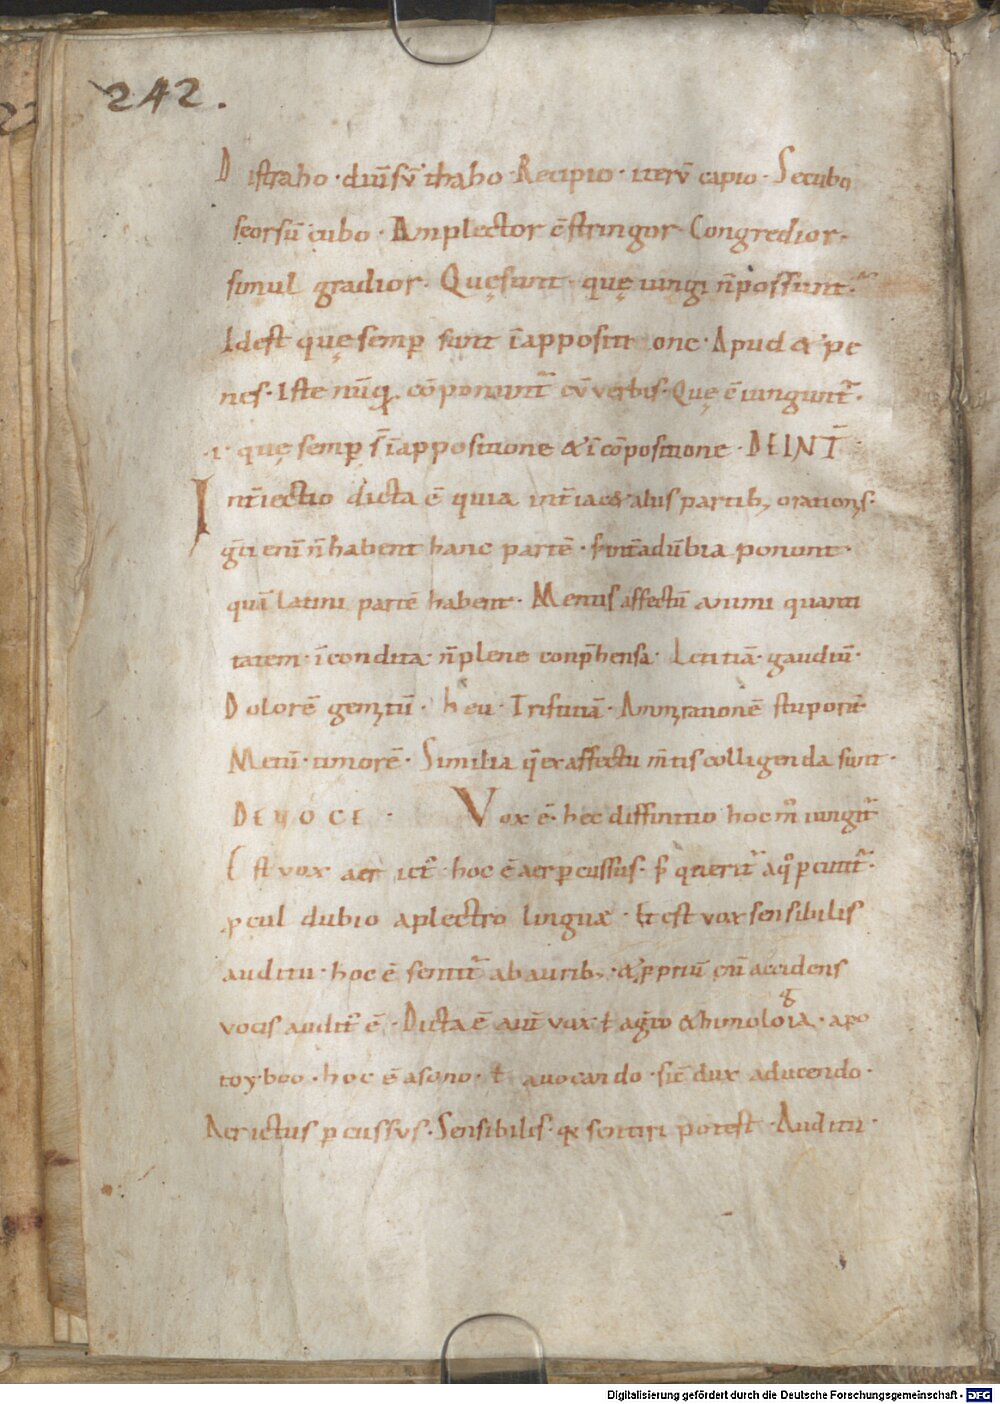 242.
Distraho · diuīsv̄ thaho · Recipio · iterv̄ capio · Secubo
seorsū cubo · Amplector c̄stringor · Congredior ·
simul gradior · Quęsunt · quę iungi n̄possunt ·
Idest quęsemp̄ sunt īappositi one · Apud & pe
nes · Iste nūq̄ · cōponunt̄ cv̄ verbis · Quę c̄iungunt̄ ·
· i · quę semp̄ s̄ īappositione & ī cōpositione · DE INT̄ ·
Int̄iectio dicta ē quia int̄iac& aliis partib; orationis ·
gr̄ci enī n̄ habent hanc partē · sint̄ aduƀia ponunt ·
quā latini partē habent · Mentis affectū animi quanti
tatem · īcondita · n̄ plene conp̄hensa · Letitiā · gaudiū ·
Dolorē gemitū · heu · Tristitiā · Ammirationē stuporē ·
Metū · timorē · Similia q̄ ex affectu m̄tis colligenda sunt ·
DE VOCE · Vox ē · hec diffinitio hoc m̊ iungit̄
Est vox aer ict᾽ · hoc ē aer p̄cussus · s; querit̄ aq̊ p̄cutit̄ ·
p̱cul dubio aplectro linguæ · Et est vox sensibilis
auditu · hoc ē sentit̄ ab aurib; · & p̱priū eni accidens
vocis audit᾽ ē · Dicta ē aut̄ vox ł agr̄co &himoloia g · apo
toy boo · hoc ē asono · ł auocando · sic̄ dux aducendo ·
Aer ictus p̄cussvs · Sensibilis · q̄ sentiri potest · Auditu ·
Digitalisierung gefördert durch die Deutsche Forschungsgemeinschaft - DFG